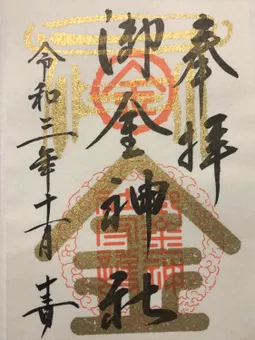 奉拝
御金神社
令和三年十一月 吉
金
金